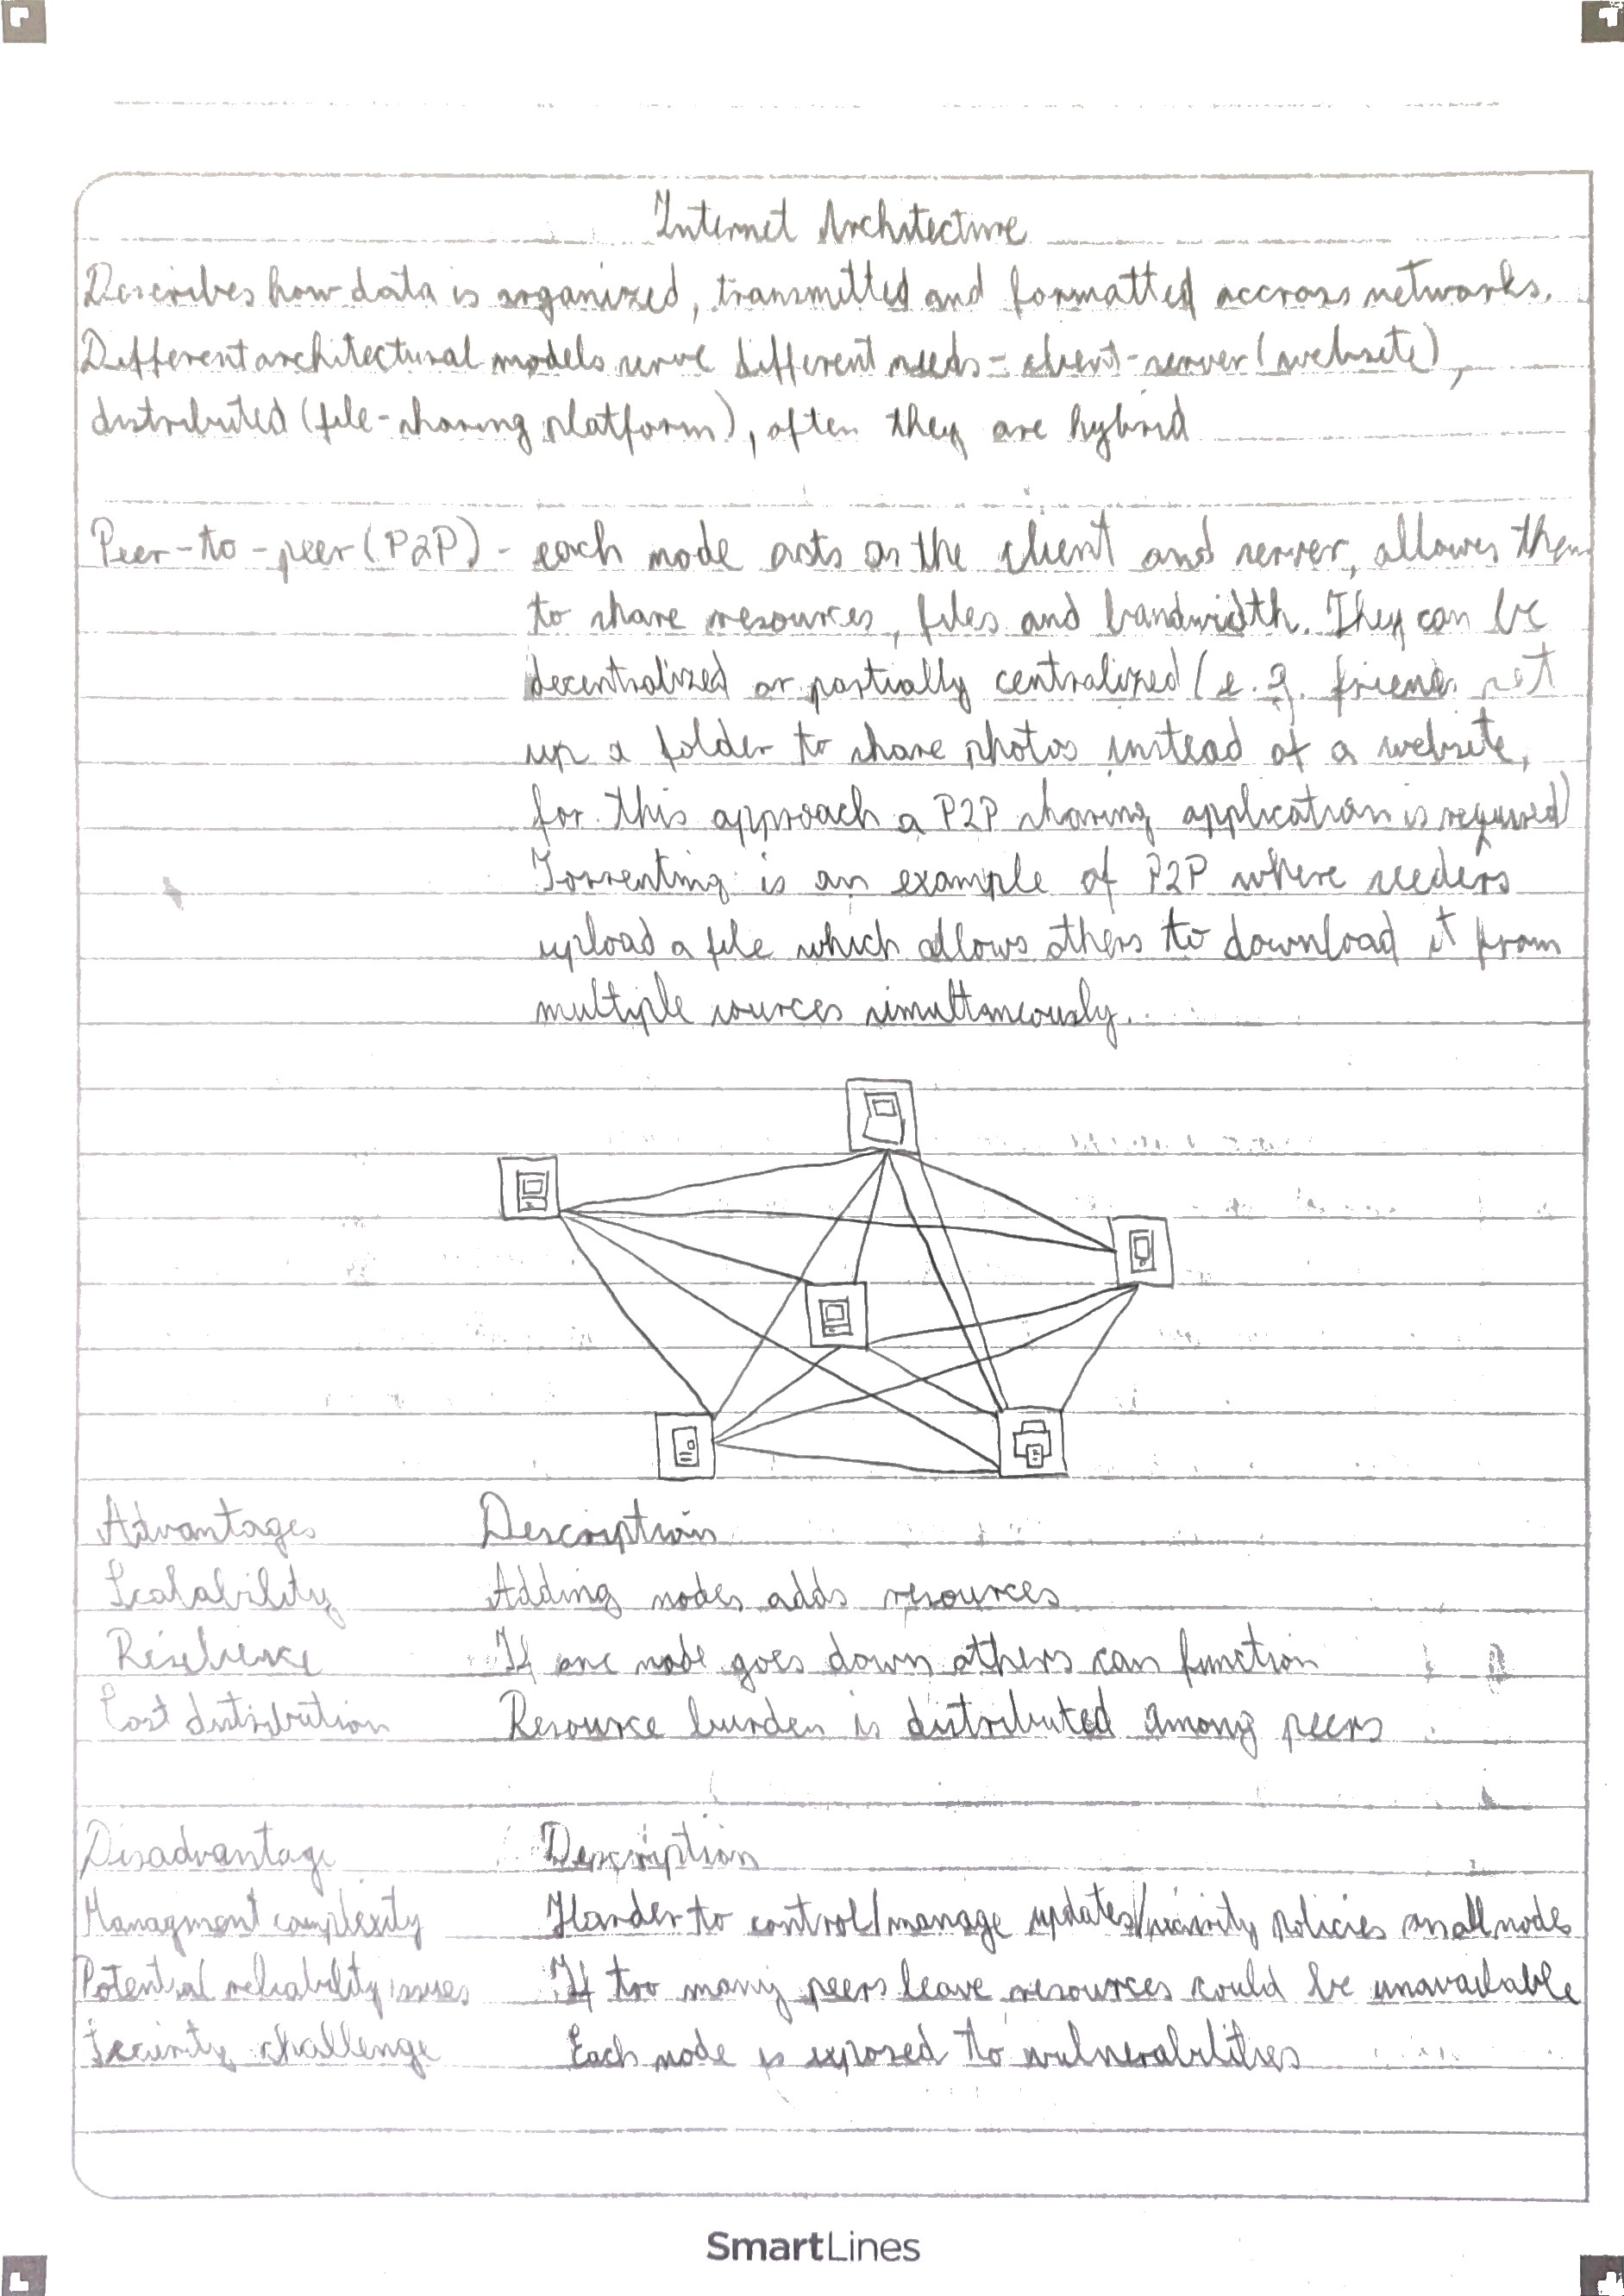 Internet Architecture
Describes how data is organized, transmitted and formatted accross networks.
Different architectural models serve different needs - client-server (website),
distributed (file-sharing platform), often they are hybrid
Peer-to-peer (P2P) - each node acts as the client and server, allowes them
to share resources, files and bandwidth. They can be
decentralized or partially centralized (e.g. friends set
up a folder to share photos instead of a website,
for this approach a P2P sharing application is required)
Torrenting is an example of P2P where seeders
upload a file which allows others to download it from
multiple sources simultaneously.
Advantages Description
Scalability Adding nodes adds resources
Resilience If one node goes down others can function
Cost distribution Resource burden is distributed among peers
Disadvantage Description
Managment complexity Harder to control/manage updates/security policies on all nodes
Potential reliability issues If too many peers leave resources could be unavailable
Security challenge Each node is exposed to vulnerabilities
SmartLines